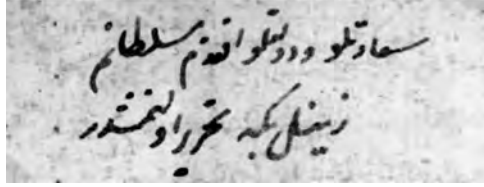 سعادتلو ودولتلو افندم سلطانم
زينل بكه تحرير اولنمشدر